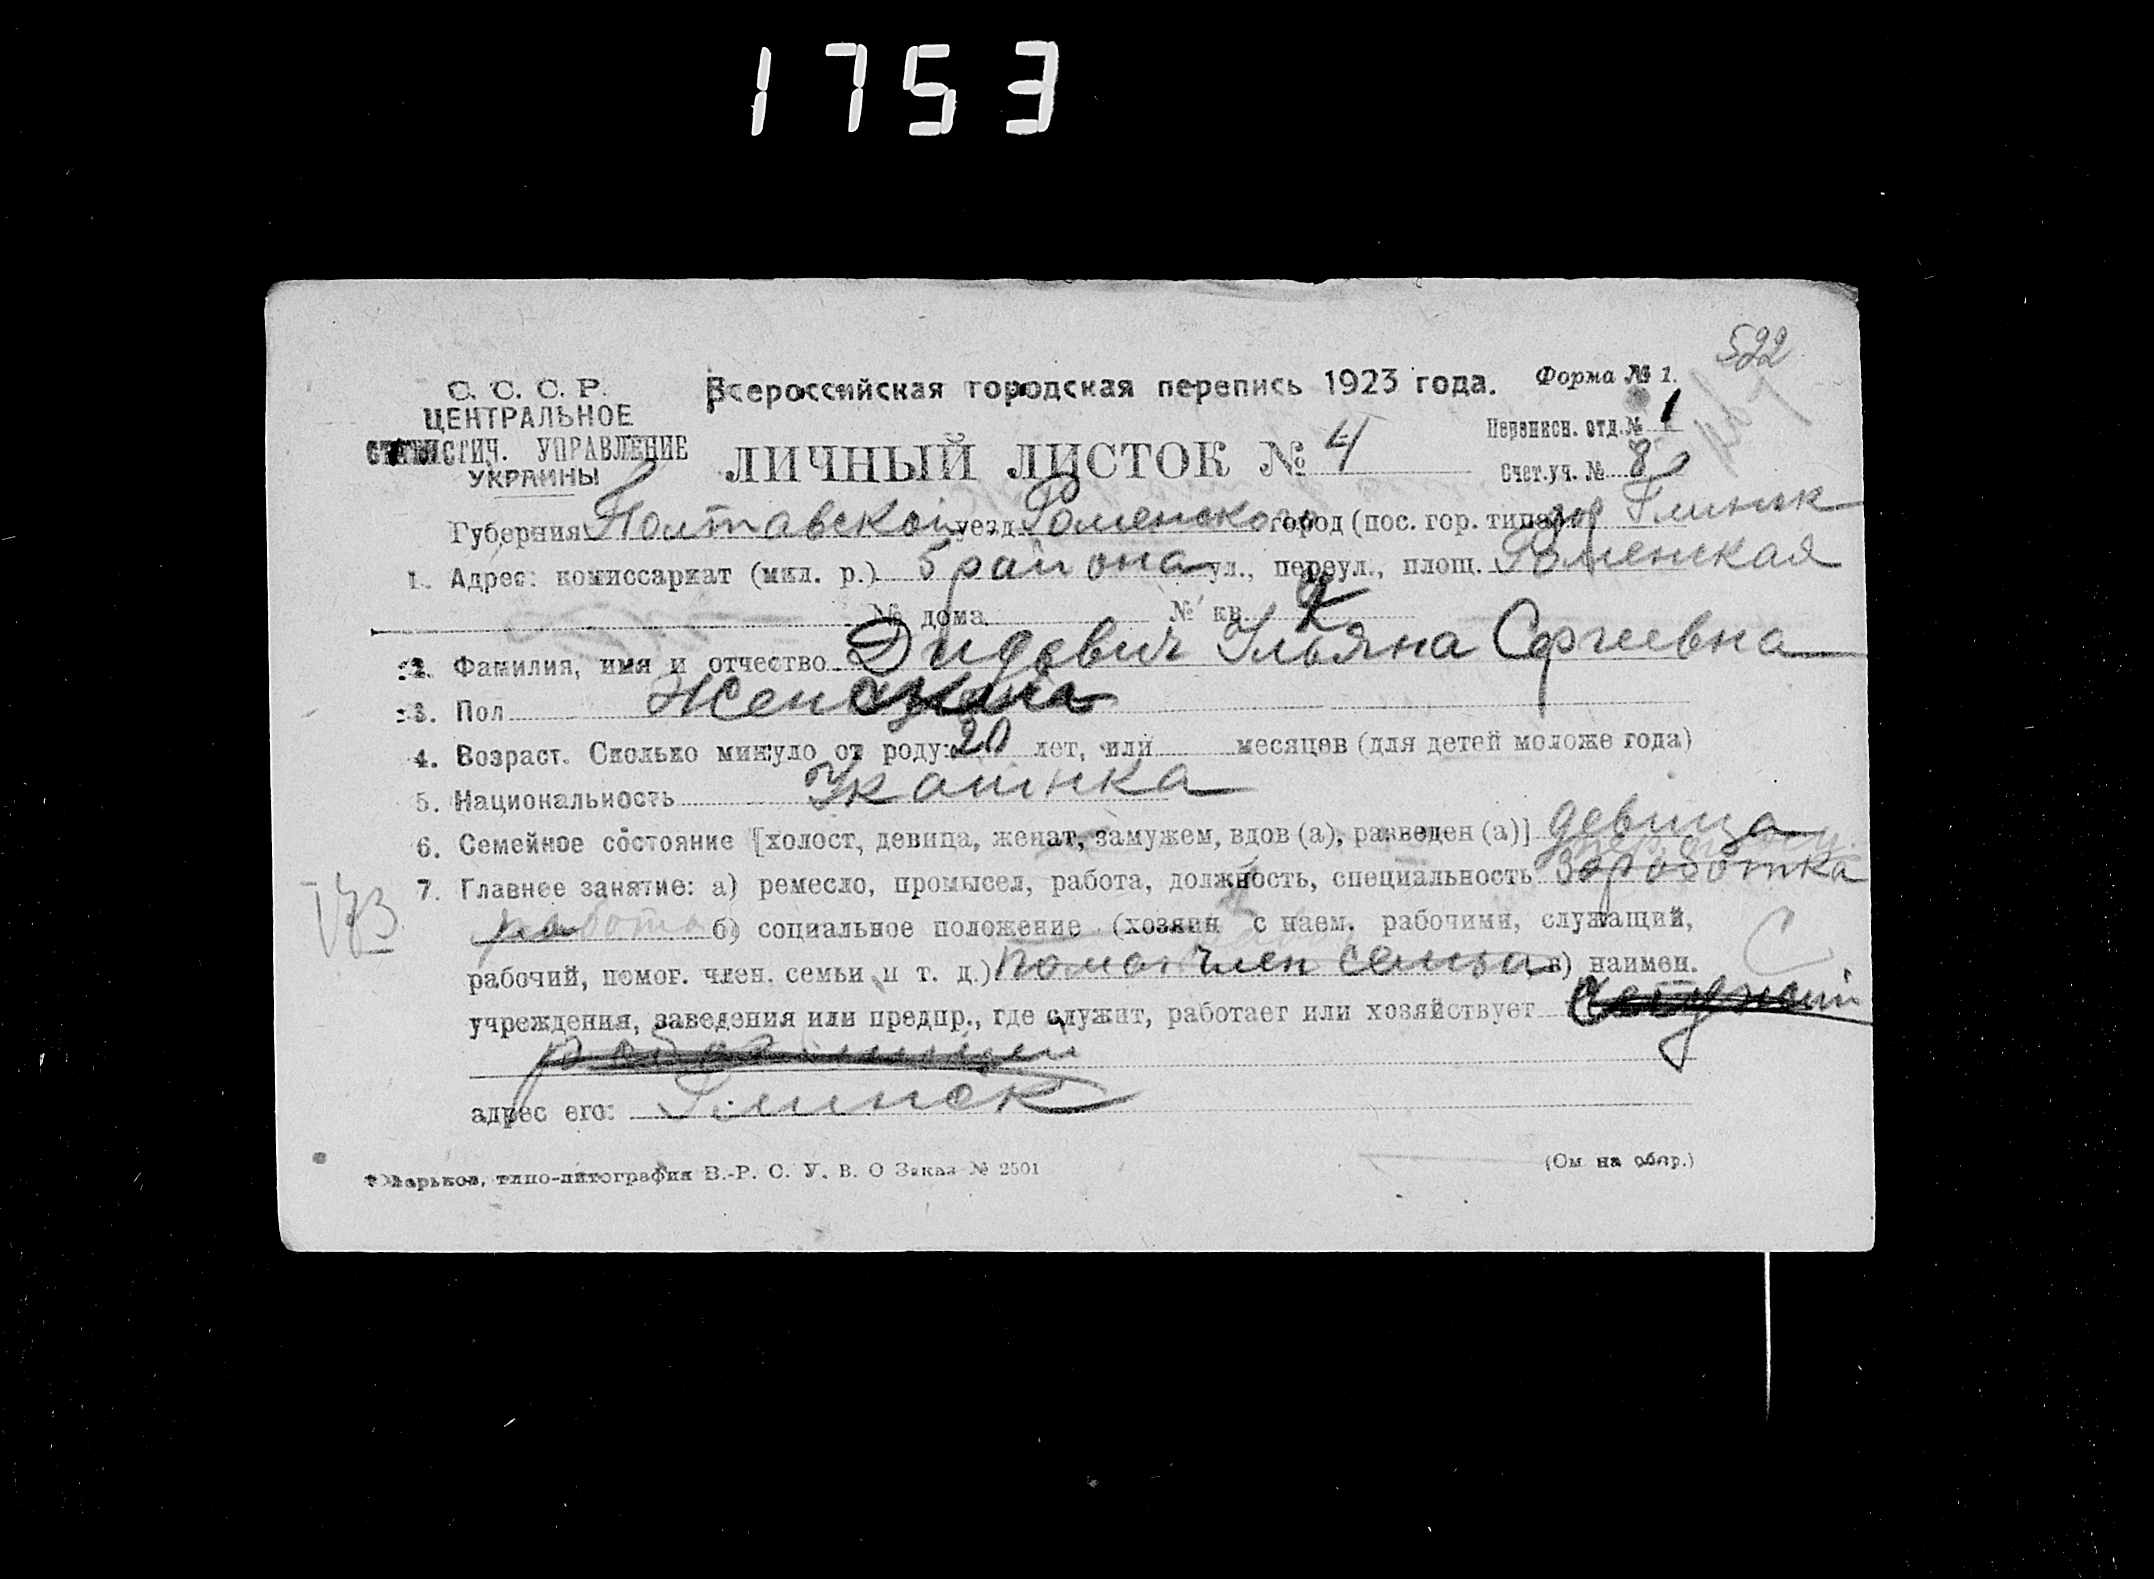 1753
522
С. С. С. Р. Всероссийская городская перепись 1923 года. Форма № 1.
ЦЕНТРАЛЬНОЕ
СТАТИСТИЧ. УПРАВЛЕНИЕ
УКРАИНЫ
ЛИЧНЫЙ ЛИСТОК № 4
Переписн. отд. № 1
Счет. уч. № 8
Губерния Полтавской уезд Роменского город (пос. гор. типа) гор Глинск
1. Адрес: комиссариат (мил. р.) 5 района ул., переул., площ. Роменская
№ дома № кв.
2. Фамилия, имя и отчество Дидович Ульяна Сергеевна
3. Пол
4. Возраст. Сколько минуло от роду: 20 лет, или месяцев (для детей моложе года)
5. Национальность Укаинка
6. Семейное состояние [холост, девица, женат, замужем, вдов (а), разведен (а)] девица
7. Главнее занятие: а) ремесло, промысел, работа, должность, специальность
173
б) социальное положение (хозяин с наем. рабочими, служащий,
рабочий, помог. член. семьи и т. д.) помог член семьи в) наимен.
С
учреждения, заведения или предпр., где служит, работает или хозяйствует
адрес его: Глинск
Харьков, типо-литография В.-Р. С. У. В. О Заказ № 2501
(См на обор.)